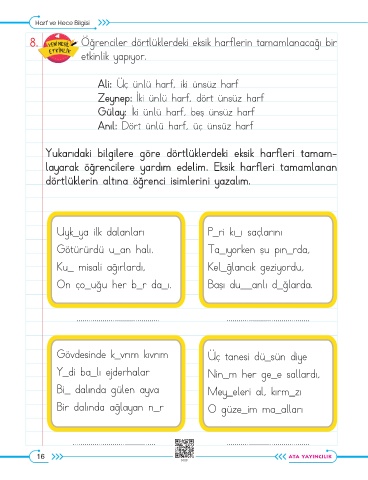 Harf ve Hece Bilgisi
8. YENİ NESİL ETKİNLİK Öğrenciler dörtlüklerdeki eksik harflerin tamamlanacağı bir
etkinlik yapıyor.
Ali: Üç ünlü harf, iki ünsüz harf
Zeynep: İki ünlü harf, dört ünsüz harf
Gülay: İki ünlü harf, beş ünsüz harf
Anıl: Dört ünlü harf, üç ünsüz harf
Yukarıdaki bilgilere göre dörtlüklerdeki eksik harfleri tamam-
layarak öğrencilere yardım edelim. Eksik harfleri tamamlanan
dörtlüklerin altına öğrenci isimlerini yazalım.
Uyk_ya ilk dalanları
Götürürdü u_an halı,
Ku_ misali ağırlardı,
On ço_uğu her b_r da_ı.
P_ri kı_ı saçlarını
Ta_ıyorken şu pın_rda,
Kel_ğlancık geziyordu,
Başı du__anlı d_ğlarda.
Gövdesinde k_vrım kıvrım
Y_di ba_lı ejderhalar
Bi_ dalında gülen ayva
Bir dalında ağlayan n_r
Üç tanesi dü_sün diye
Nin_m her ge_e sallardı,
Mey_eleri al, kırm_zı
O güze_im ma_alları
16
ATA YAYINCILIK